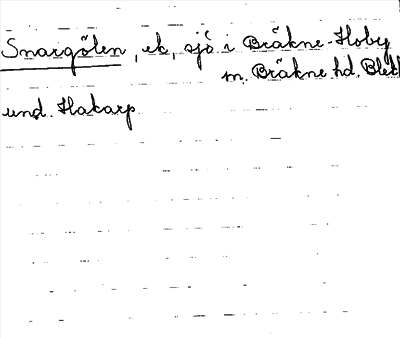 Snargölen, ek, sjö i Bräkne-Hoby
m. Bräkne hd. Blek
und. Hakarp